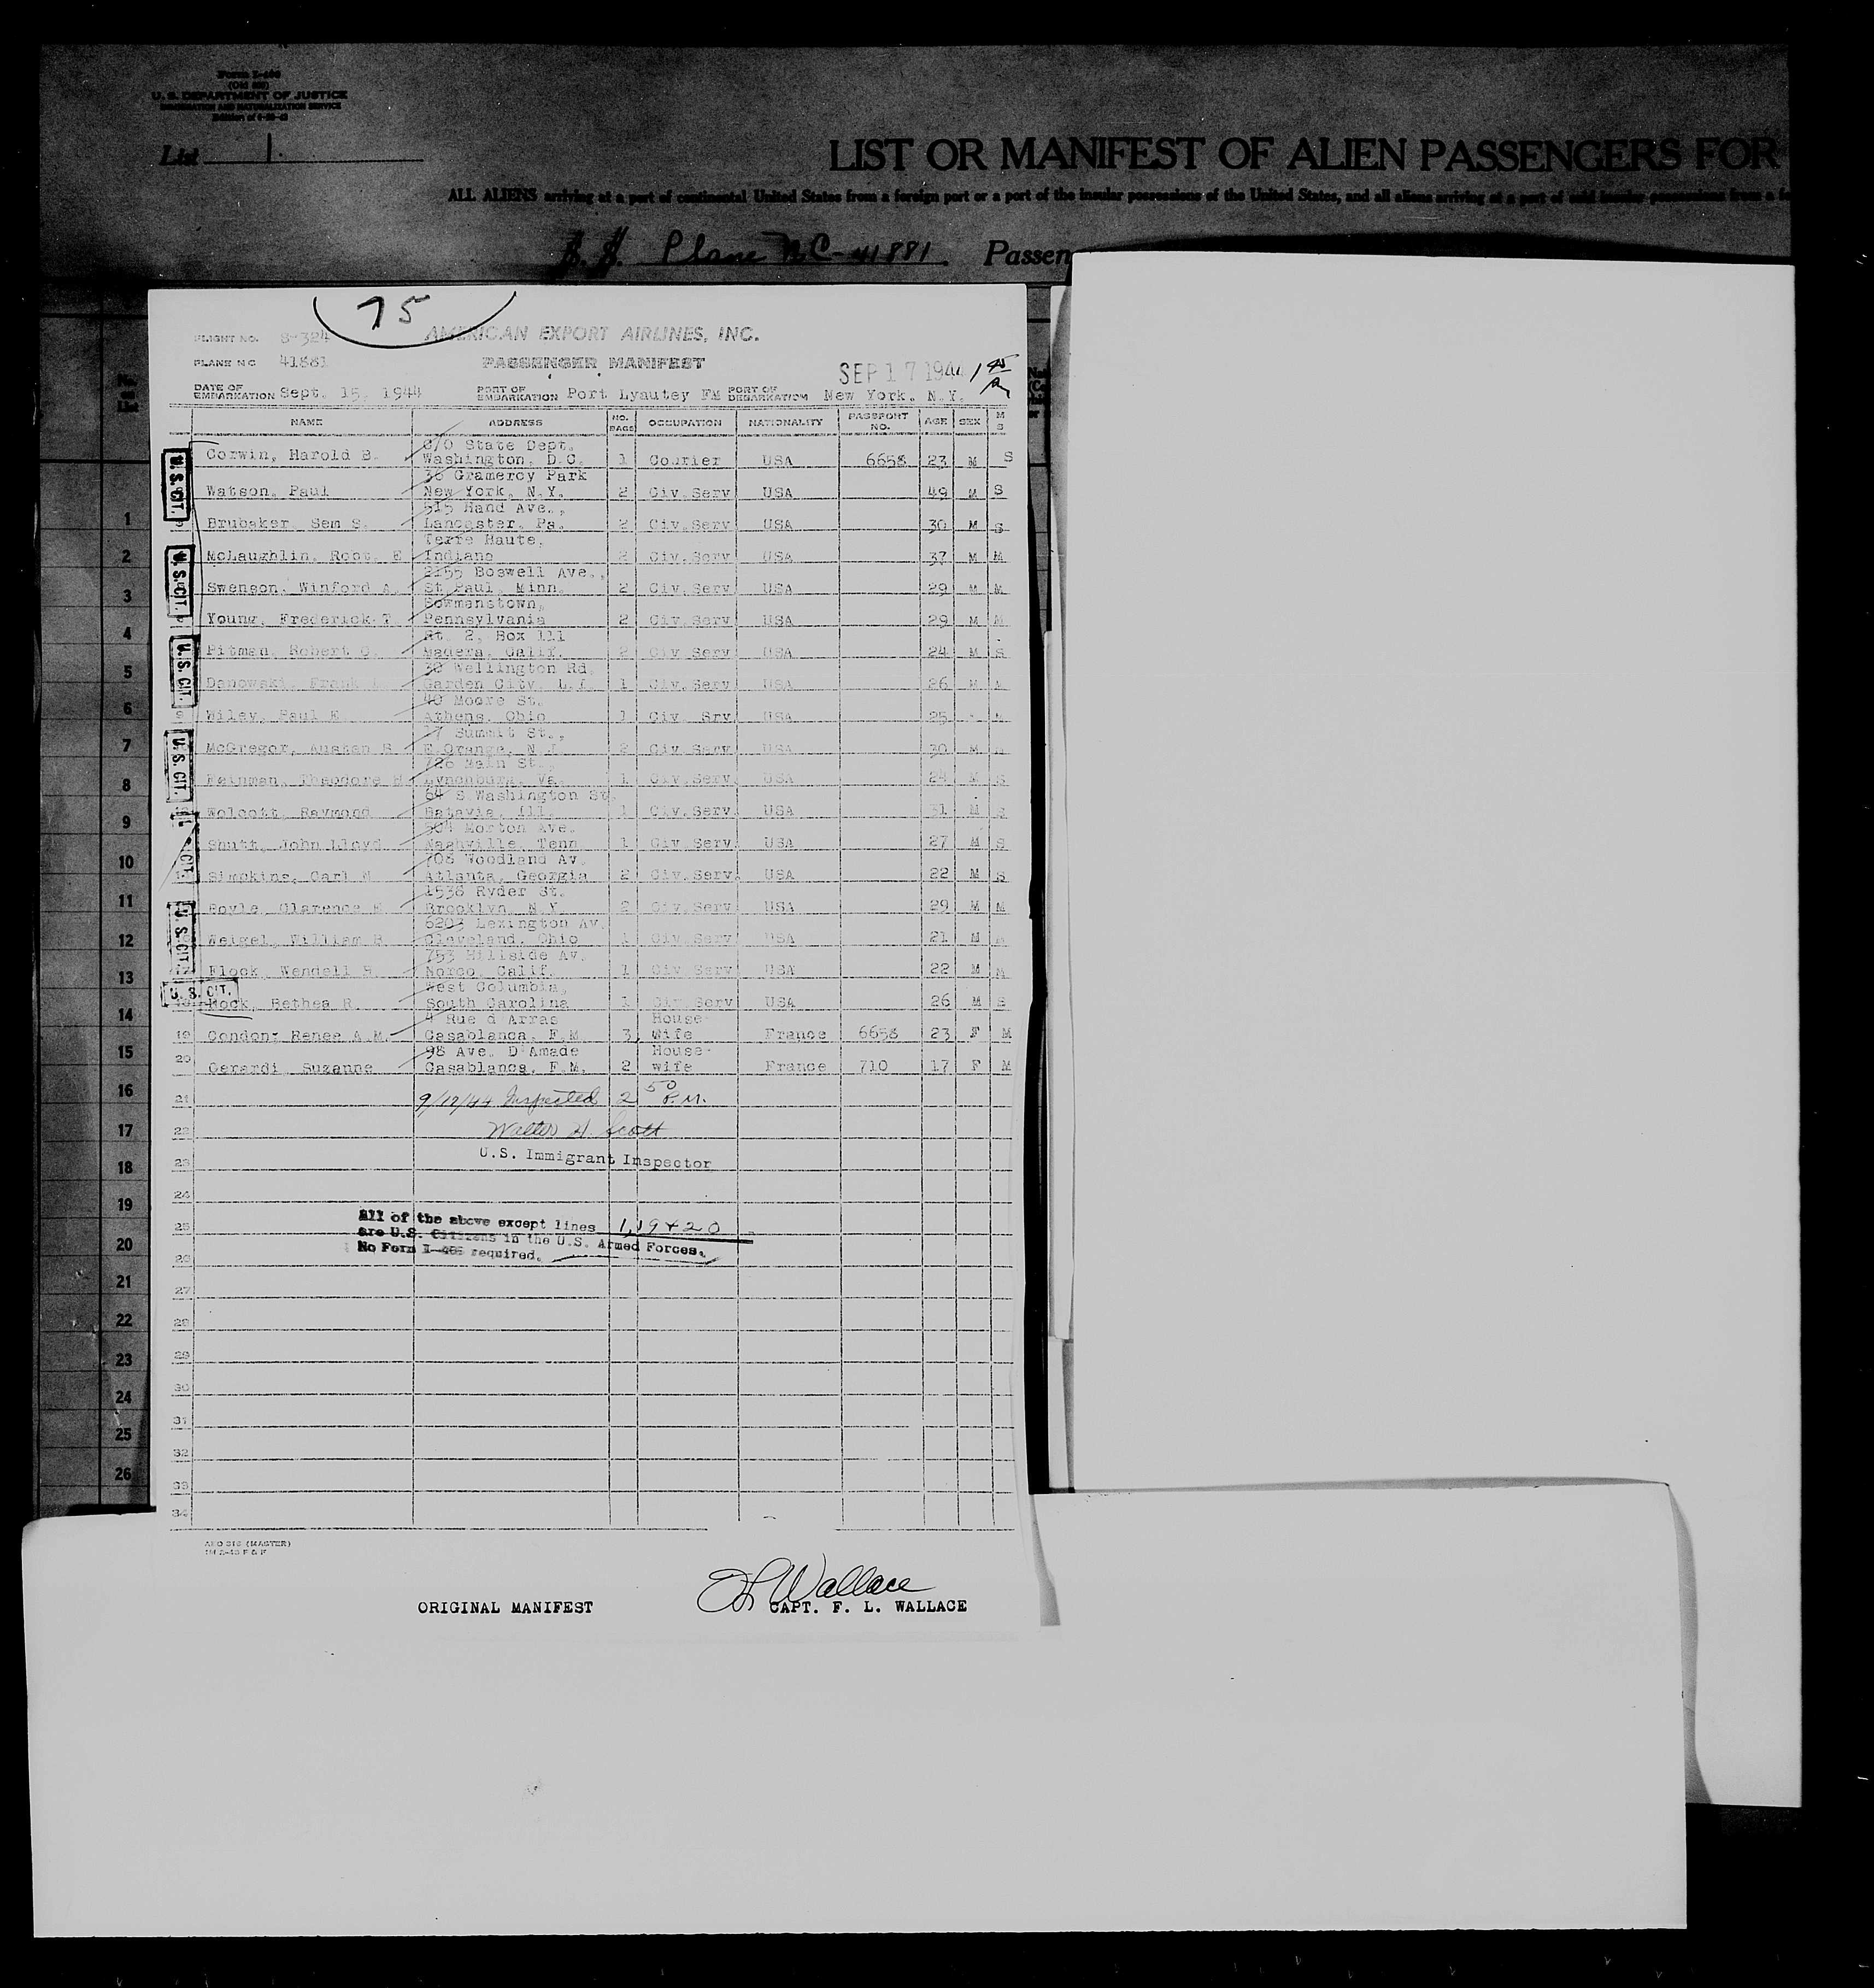 Form I-466
(Old 500)
U. S. DEPARTMENT OF JUSTICE
IMMIGRATION AND NATURALIZATION SERVICE
List 1.
LIST OR MANIFEST OF ALIEN PASSENGERS FOR
ALL ALIENS arriving at a port of continental United States from a foreign port or a port of the insular possessions of the United States, and all aliens arriving at a port of said insular possessions from a fo
S. S. Plane NC-41881. Passen
75
FLIGHT NO. 8-324 AMERICAN EXPORT AIRLINES, INC.
PLANE NC 41881 PASSENGER MANIFEST SEP 17 1944 1 45 P
DATE OF EMBARKATION Sept. 15, 1944 PORT OF EMBARKATION Port Lyautey FM PORT OF DEBARKATION New York, N.Y.
NAME ADDRESS NO. BAGS OCCUPATION NATIONALITY PASSPORT NO. AGE SEX M S
C/O State Dept.
Corwin, Harold B. Washington, D.C. 1 Courier USA 6658 23 M S
36 Gramercy Park
Watson, Paul New York, N.Y. 2 Civ.Serv USA 49 M S
515 Hand Ave.,
Brubaker, Sem S. Lancaster, Pa. 2 Civ.Serv USA 30 M S
Terre Haute,
McLaughlin, Robt. E Indiana 2 Civ.Serv USA 37 M M
2155 Boswell Ave.,
Swenson, Winford A. St Paul, Minn. 2 Civ.Serv USA 29 M M
Bowmanstown,
Young, Frederick T. Pennsylvania 2 Civ.Serv USA 29 M M
Rt. 2, Box 111
Pitman, Robert O. Madera, Calif. 2 Civ Serv USA 24 M S
38 Wellington Rd.
Danowski, Frank Garden City, L.I. 1 Civ.Serv USA 26 M M
40 Moore St.
Wiley, Paul E. Athens, Ohio 1 Civ. Srv USA 25 M
17 Summit St.,
McGregor, Austen R E.Orange, N.J. 2 Civ.Serv USA 30 M M
726 Main St.,
Fainman, Theodore H Lynchburg, Va. 1 Civ.Serv. USA 24 M S
64 S.Washington St.
Wolcott, Raymond Batavia, Ill. 1 Civ.Serv USA 31 M S
504 Morton Ave.
Shutt, John Lloyd Nashville, Tenn 1 Civ Serv USA 27 M S
708 Woodland Av.
Simpkins, Carl N Atlanta, Georgia 2 Civ.Serv. USA 22 M S
1538 Ryder St.
Boyle, Clarence E. Brooklyn, N.Y. 2 Civ.Serv USA 29 M M
6203 Lexington Av.
Weigel, William B. Cleveland, Ohio 1 Civ Serv USA 21 M M
753 Hillside Av.
Flock, Wendell R. Norco, Calif. 1 Civ Serv USA 22 M M
West Columbia,
Mock, Bethea R. South Carolina 1 Civ Serv USA 26 M S
4 Rue d Arras House-
19 Condon, Renee A.M. Casablanca, F.M 3 Wife France 6658 23 F M
98 Ave. D'Amade House-
20 Gerardi, Suzanne Casablanca, F.M. 2 wife France 710 17 F M
U. S. CIT.
U. S. CIT.
U. S. CIT.
U. S. CIT.
U. S. CIT.
U. S. CIT.
21 9/17/44 Inspected 2 50 P.M.
22 Walter H. Scott
23 U.S. Immigrant Inspector
24
25 All of the above except lines 1, 19 & 20
are U.S. Citizens in the U.S. Armed Forces.
26 No Form I-466 required.
27
28
29
30
31
32
33
34
AEO 318 (MASTER)
ORIGINAL MANIFEST
F L Wallace
CAPT. F. L. WALLACE
No. on List
1
2
3
4
5
6
7
8
9
10
11
12
13
14
15
16
17
18
19
20
21
22
23
24
25
26